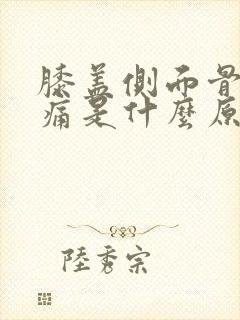 膝盖側而骨
痛是什麼原
陸秀宗